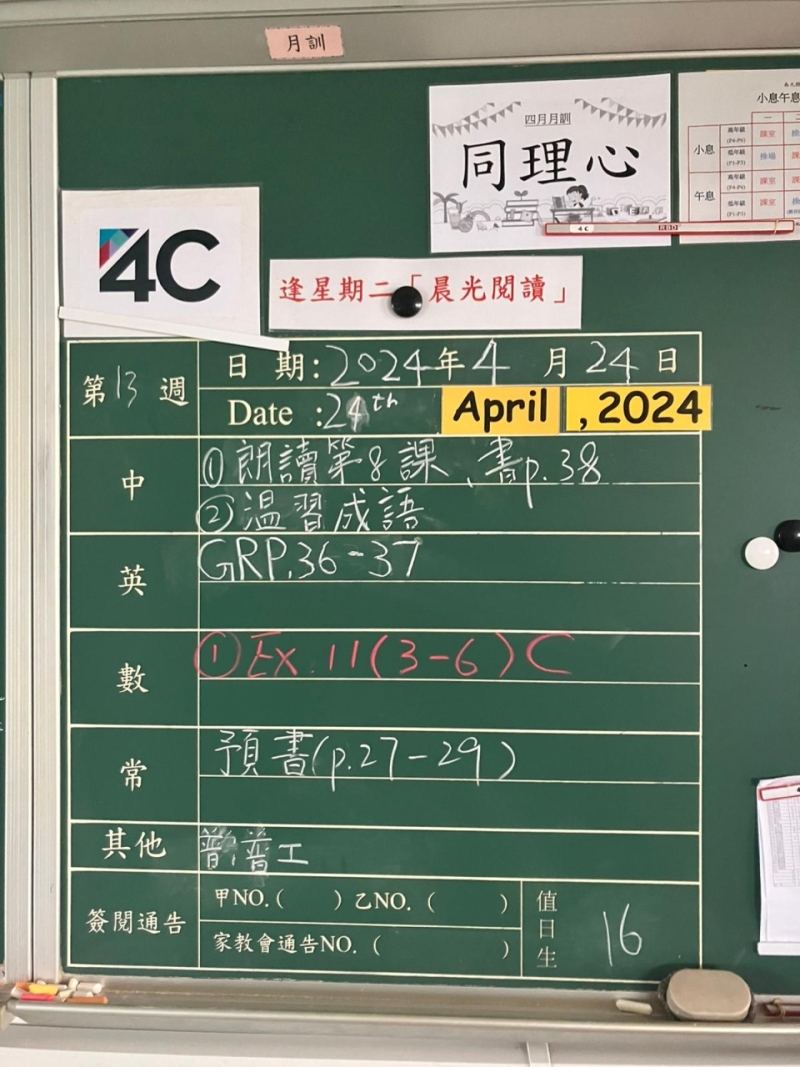 月訓
四月月訓
同理心
小息午息
一
小息
高年級
(P4-P6)
課室
低年級
(P1-P3)
操場
午息
高年級
(P4-P6)
課室
低年級
(P1-P3)
課室
4C
RBD
4C
逢星期二「晨光閱讀」
第13週
日期:2024年4月24日
Date :24th April , 2024
中
①朗讀第8課、書p.38
②温習成語
英
GRP.36-37
數
①Ex.11(3-6)C
常
預書(p.27-29)
其他
普工
簽閱通告
甲NO.( )乙NO.( )
家教會通告NO.( )
值日生
16